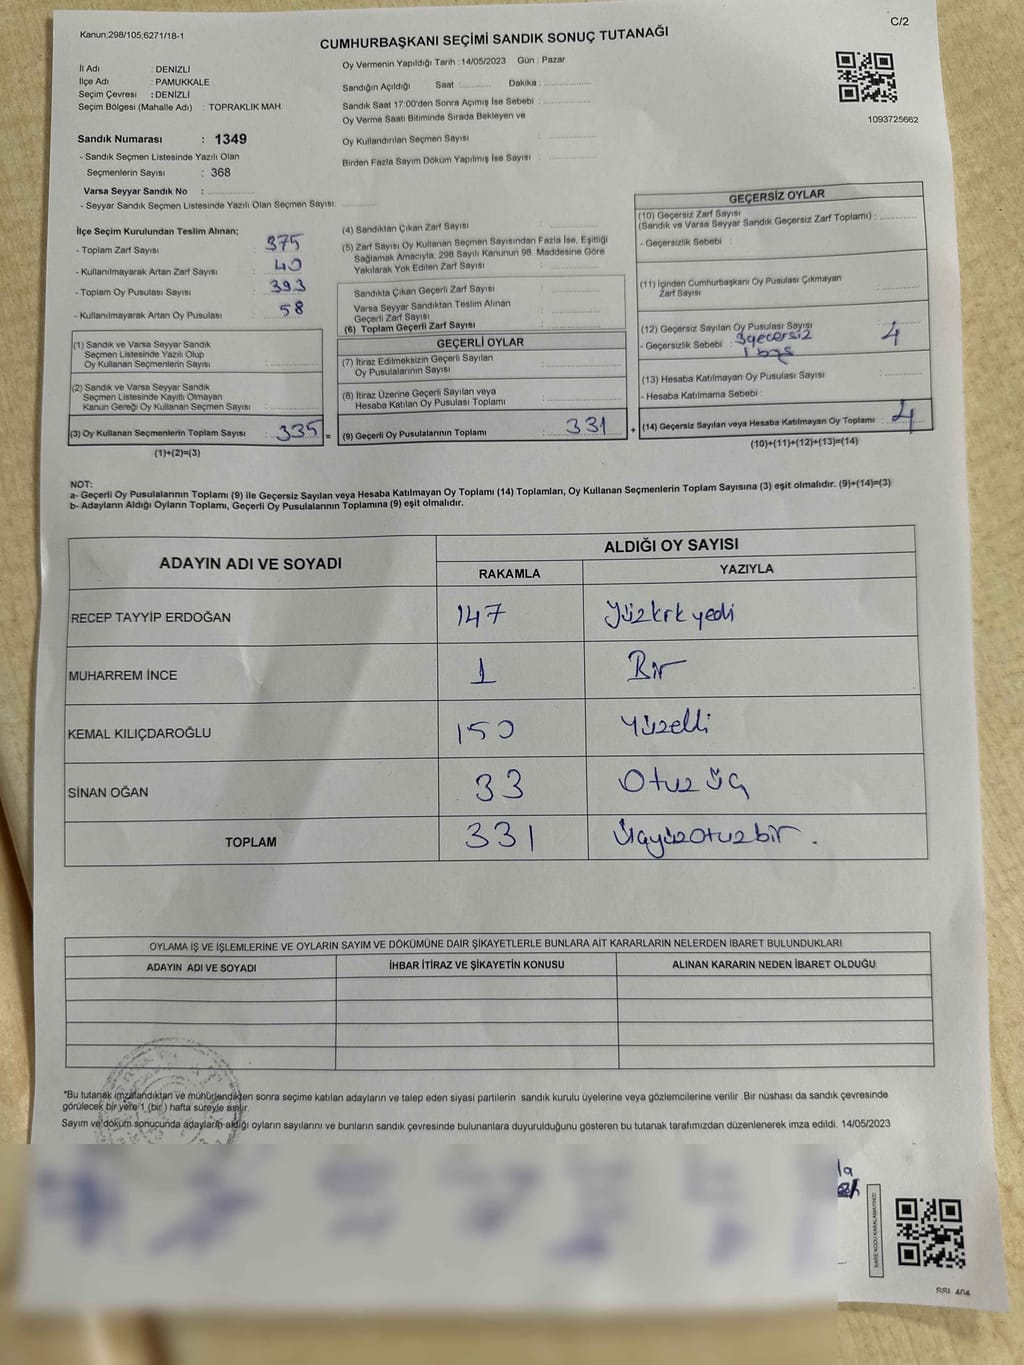 Kanun;298/105;6271/18-1
C/2
CUMHURBAŞKANI SEÇİMİ SANDIK SONUÇ TUTANAĞI
İl Adı : DENİZLİ
İlçe Adı : PAMUKKALE
Seçim Çevresi : DENİZLİ
Seçim Bölgesi (Mahalle Adı) : TOPRAKLIK MAH.
Sandık Numarası : 1349
- Sandık Seçmen Listesinde Yazılı Olan
Seçmenlerin Sayısı : 368
Varsa Seyyar Sandık No :
- Seyyar Sandık Seçmen Listesinde Yazılı Olan Seçmen Sayısı:
Oy Vermenin Yapıldığı Tarih : 14/05/2023 Gün : Pazar
Sandığın Açıldığı Saat Dakika :
Sandık Saat 17:00'den Sonra Açımış İse Sebebi :
Oy Verme Saati Bitiminde Sırada Bekleyen ve
Oy Kullandırılan Seçmen Sayısı :
Birden Fazla Sayım Döküm Yapılmış İse Sayısı :
1093725662
İlçe Seçim Kurulundan Teslim Alınan;
- Toplam Zarf Sayısı : 375
- Kullanılmayarak Artan Zarf Sayısı : 40
- Toplam Oy Pusulası Sayısı : 393
- Kullanılmayarak Artan Oy Pusulası : 58
(1) Sandık ve Varsa Seyyar Sandık
Seçmen Listesinde Yazılı Olup
Oy Kullanan Seçmenlerin Sayısı :
(2) Sandık ve Varsa Seyyar Sandık
Seçmen Listesinde Kayıtlı Olmayan
Kanun Gereği Oy Kullanan Seçmen Sayısı :
(3) Oy Kullanan Seçmenlerin Toplam Sayısı : 335 =
(1)+(2)=(3)
(4) Sandıktan Çıkan Zarf Sayısı :
(5) Zarf Sayısı Oy Kullanan Seçmen Sayısından Fazla İse, Eşitliği
Sağlamak Amacıyla; 298 Sayılı Kanunun 98. Maddesine Göre
Yakılarak Yok Edilen Zarf Sayısı :
Sandıkta Çıkan Geçerli Zarf Sayısı :
Varsa Seyyar Sandıktan Teslim Alınan
Geçerli Zarf Sayısı :
(6) Toplam Geçerli Zarf Sayısı :
GEÇERLİ OYLAR
(7) İtiraz Edilmeksizin Geçerli Sayılan
Oy Pusulalarının Sayısı :
(8) İtiraz Üzerine Geçerli Sayılan veya
Hesaba Katılan Oy Pusulası Toplamı :
(9) Geçerli Oy Pusulalarının Toplamı : 331 +
GEÇERSİZ OYLAR
(10) Geçersiz Zarf Sayısı
(Sandık ve Varsa Seyyar Sandık Geçersiz Zarf Toplamı) :
- Geçersizlik Sebebi :
(11) İçinden Cumhurbaşkanı Oy Pusulası Çıkmayan
Zarf Sayısı :
(12) Geçersiz Sayılan Oy Pusulası Sayısı : 4
- Geçersizlik Sebebi : 3geçersiz
1 boş
(13) Hesaba Katılmayan Oy Pusulası Sayısı :
- Hesaba Katılmama Sebebi :
(14) Geçersiz Sayılan veya Hesaba Katılmayan Oy Toplamı : 4
(10)+(11)+(12)+(13)=(14)
NOT:
a- Geçerli Oy Pusulalarının Toplamı (9) ile Geçersiz Sayılan veya Hesaba Katılmayan Oy Toplamı (14) Toplamları, Oy Kullanan Seçmenlerin Toplam Sayısına (3) eşit olmalıdır. (9)+(14)=(3)
b- Adayların Aldığı Oyların Toplamı, Geçerli Oy Pusulalarının Toplamına (9) eşit olmalıdır.
ADAYIN ADI VE SOYADI
ALDIĞI OY SAYISI
RAKAMLA YAZIYLA
RECEP TAYYİP ERDOĞAN 147 Yüzkrkyedi
MUHARREM İNCE 1 Bir
KEMAL KILIÇDAROĞLU 150 Yüzelli
SİNAN OĞAN 33 Otuz üç
TOPLAM 331 Üçyüzotuzbir.
OYLAMA İŞ VE İŞLEMLERİNE VE OYLARIN SAYIM VE DÖKÜMÜNE DAİR ŞİKAYETLERLE BUNLARA AİT KARARLARIN NELERDEN İBARET BULUNDUKLARI
ADAYIN ADI VE SOYADI İHBAR İTİRAZ VE ŞİKAYETİN KONUSU ALINAN KARARIN NEDEN İBARET OLDUĞU
*Bu tutanak imzalandıktan ve mühürlendikten sonra seçime katılan adayların ve talep eden siyasi partilerin sandık kurulu üyelerine veya gözlemcilerine verilir. Bir nüshası da sandık çevresinde
görülecek bir yere 1 (bir) hafta süreyle asılır.
Sayım ve döküm sonucunda adayların aldığı oyların sayılarını ve bunların sandık çevresinde bulunanlara duyurulduğunu gösteren bu tutanak tarafımızdan düzenlenerek imza edildi. 14/05/2023
KARE KODU KARALAMAYINIZ!